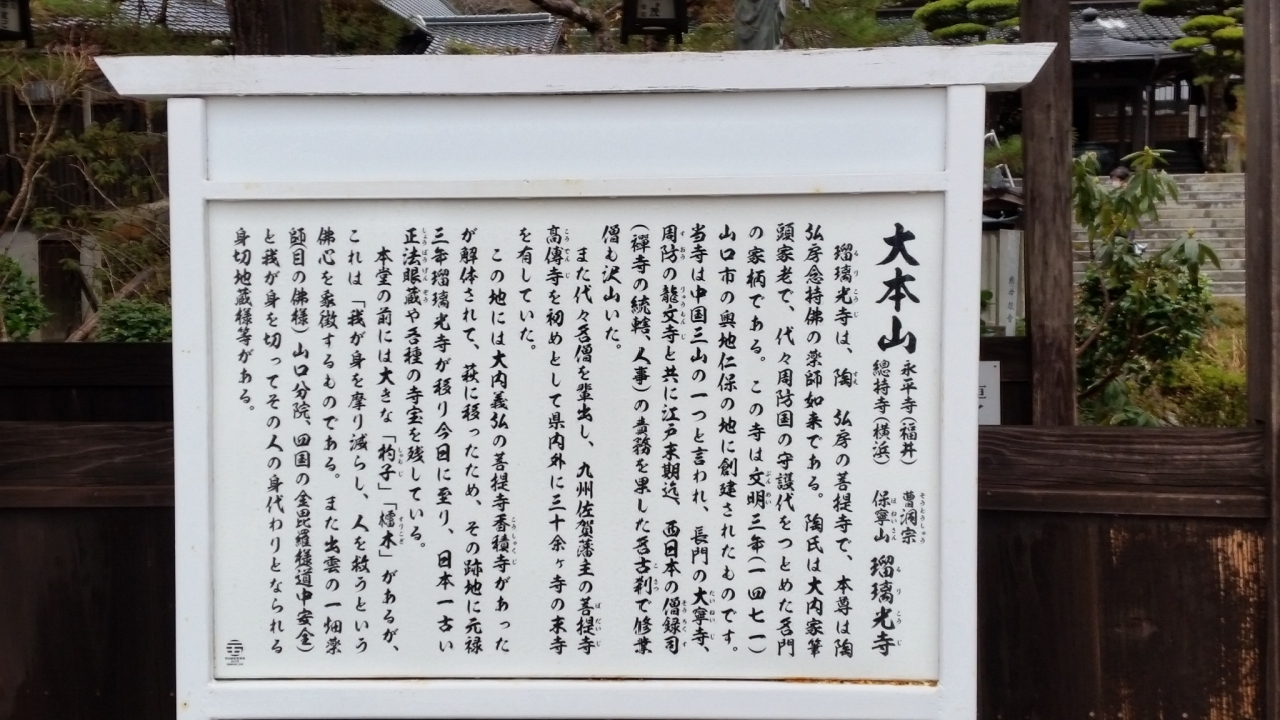 大本山
永平寺(福井)
總持寺(横浜)
曹洞宗
保寧山
瑠璃光寺
瑠璃光寺は、陶 弘房の菩提寺で、本尊は陶
弘房念持佛の薬師如来である。陶氏は大内家筆
頭家老で、代々周防国の守護代をつとめた名門
の家柄である。この寺は文明三年(一四七一)
山口市の奥地仁保の地に創建されたものです。
当寺は中国三山の一つと言われ、長門の大寧寺、
周防の龍文寺と共に江戸末期迄、西日本の僧録司
(禅寺の統轄、人事)の責務を果した名古刹で修業
僧も沢山いた。
また代々名僧を輩出し、九州佐賀藩主の菩提寺
高傳寺を初めとして県内外に三十余ヶ寺の末寺
を有していた。
この地には大内義弘の菩提寺香積寺があった
が解体されて、萩に移ったため、その跡地に元禄
三年瑠璃光寺が移り今日に至り、日本一古い
正法眼蔵や各種の寺宝を残している。
本堂の前には大きな「杓子」「橲木」があるが、
これは「我が身を摩り減らし、人を救うという
佛心を象徴するものである。また出雲の一畑薬
師(目の佛様)山口分院、四国の金毘羅様(道中安全)
と我が身を切ってその人の身代わりとなられる
身切地蔵様等がある。